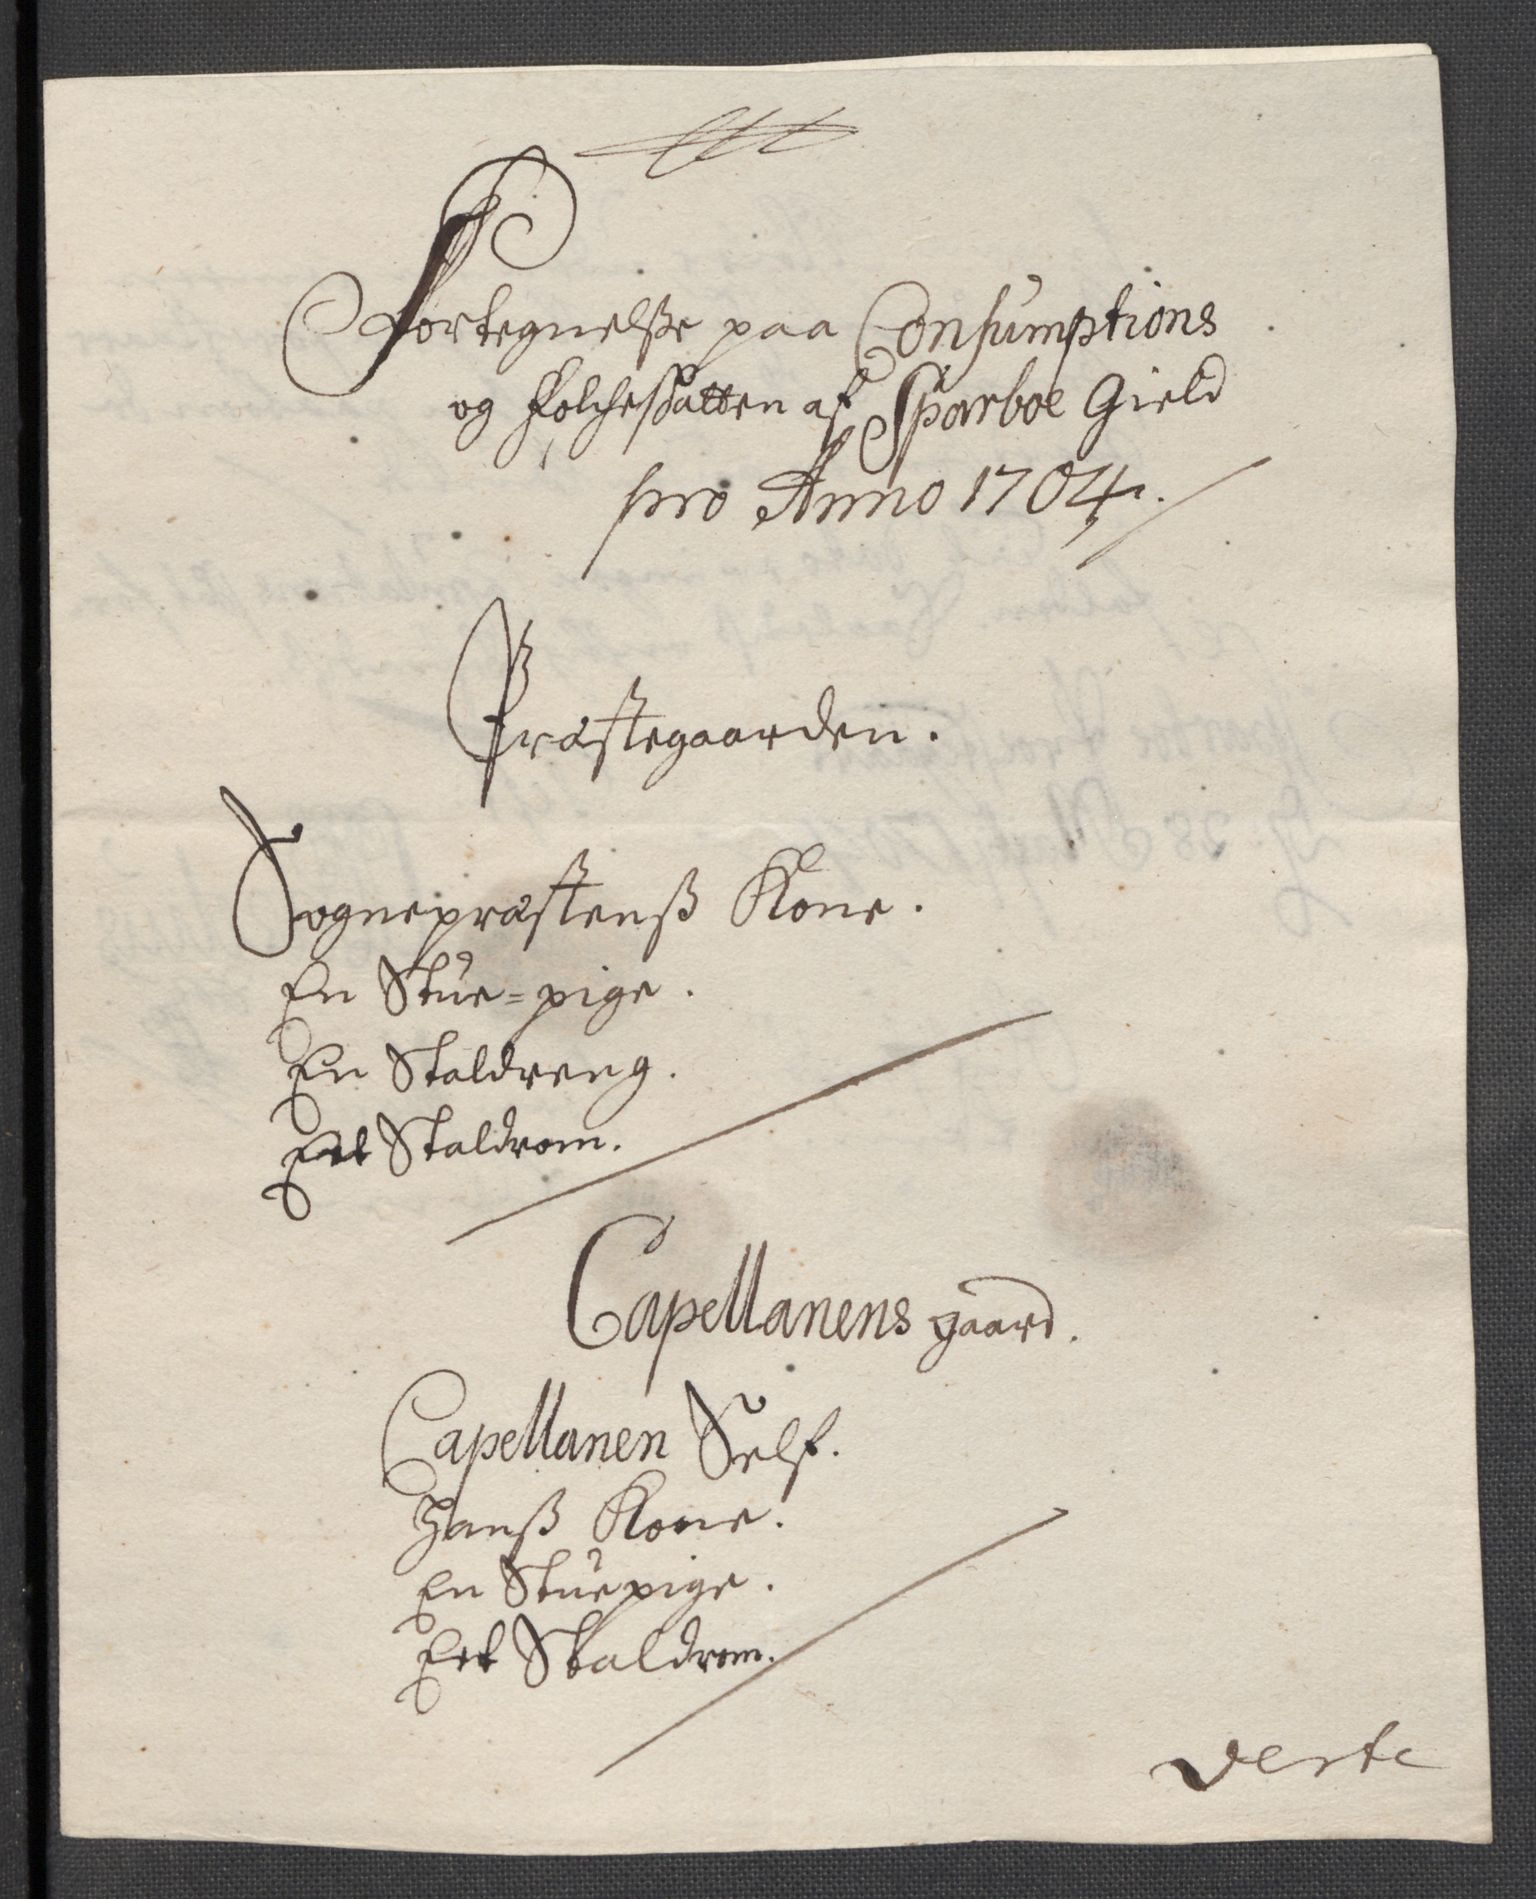 Fortegnelsse paa Consumptions
og Folchesskatten af Sparboe Gield
pro Anno 1704.
Præstegaarden.
Sognepræstenss Kone.
En Stue=pige.
En Staldreng.
Ett Staldrom.
Capellanens gaard.
Capellanen Self.
Hanss Kone.
En Stuepige.
Ett Staldrom.
verte